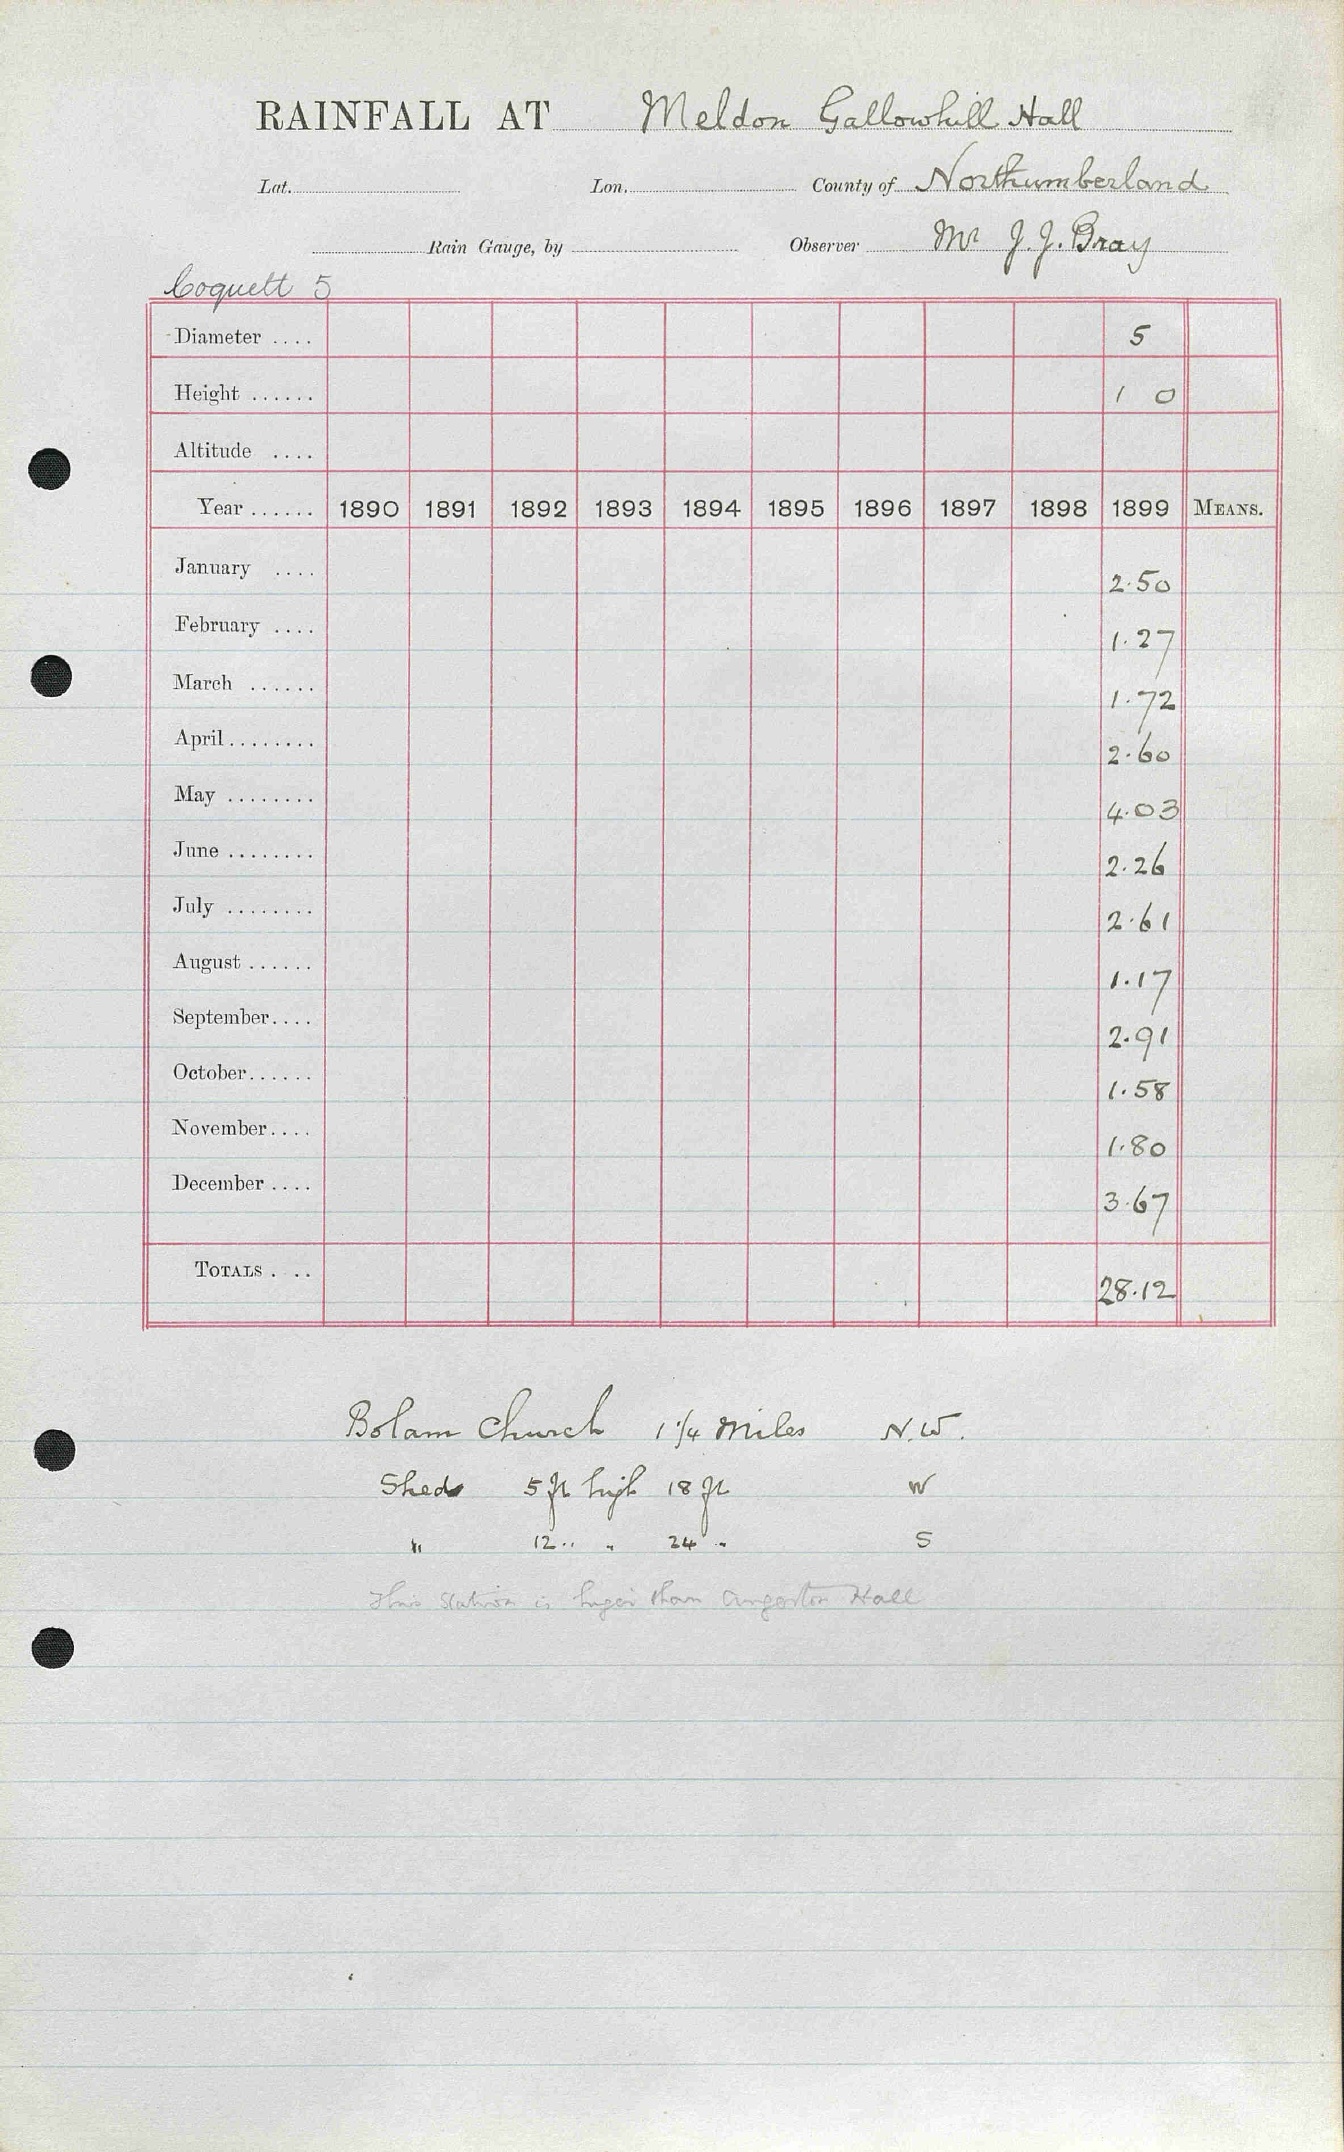 RAINFALL AT Meldon Gallowhill Hall
Lat. Lon. County of Northumberland
Rain Gauge, by Observer Mr J. J. Bray
Coquett 5
Diameter .... 5
Height ...... 1 0
Altitude ....
Year ...... 1890 1891 1892 1893 1894 1895 1896 1897 1898 1899 MEANS.
January .... 2.50
February .... 1.27
March ...... 1.72
April ........ 2.60
May ........ 4.03
June ........ 2.26
July ........ 2.61
August ...... 1.17
September .... 2.91
October ...... 1.58
November .... 1.80
December .... 3.67
TOTALS . .. 28.12
Bolam Church 1 1/4 Miles N.W.
Sheds 5 ft high 18 ft W
" 12 " " 24 " S
This Station is higher than Angerton Hall